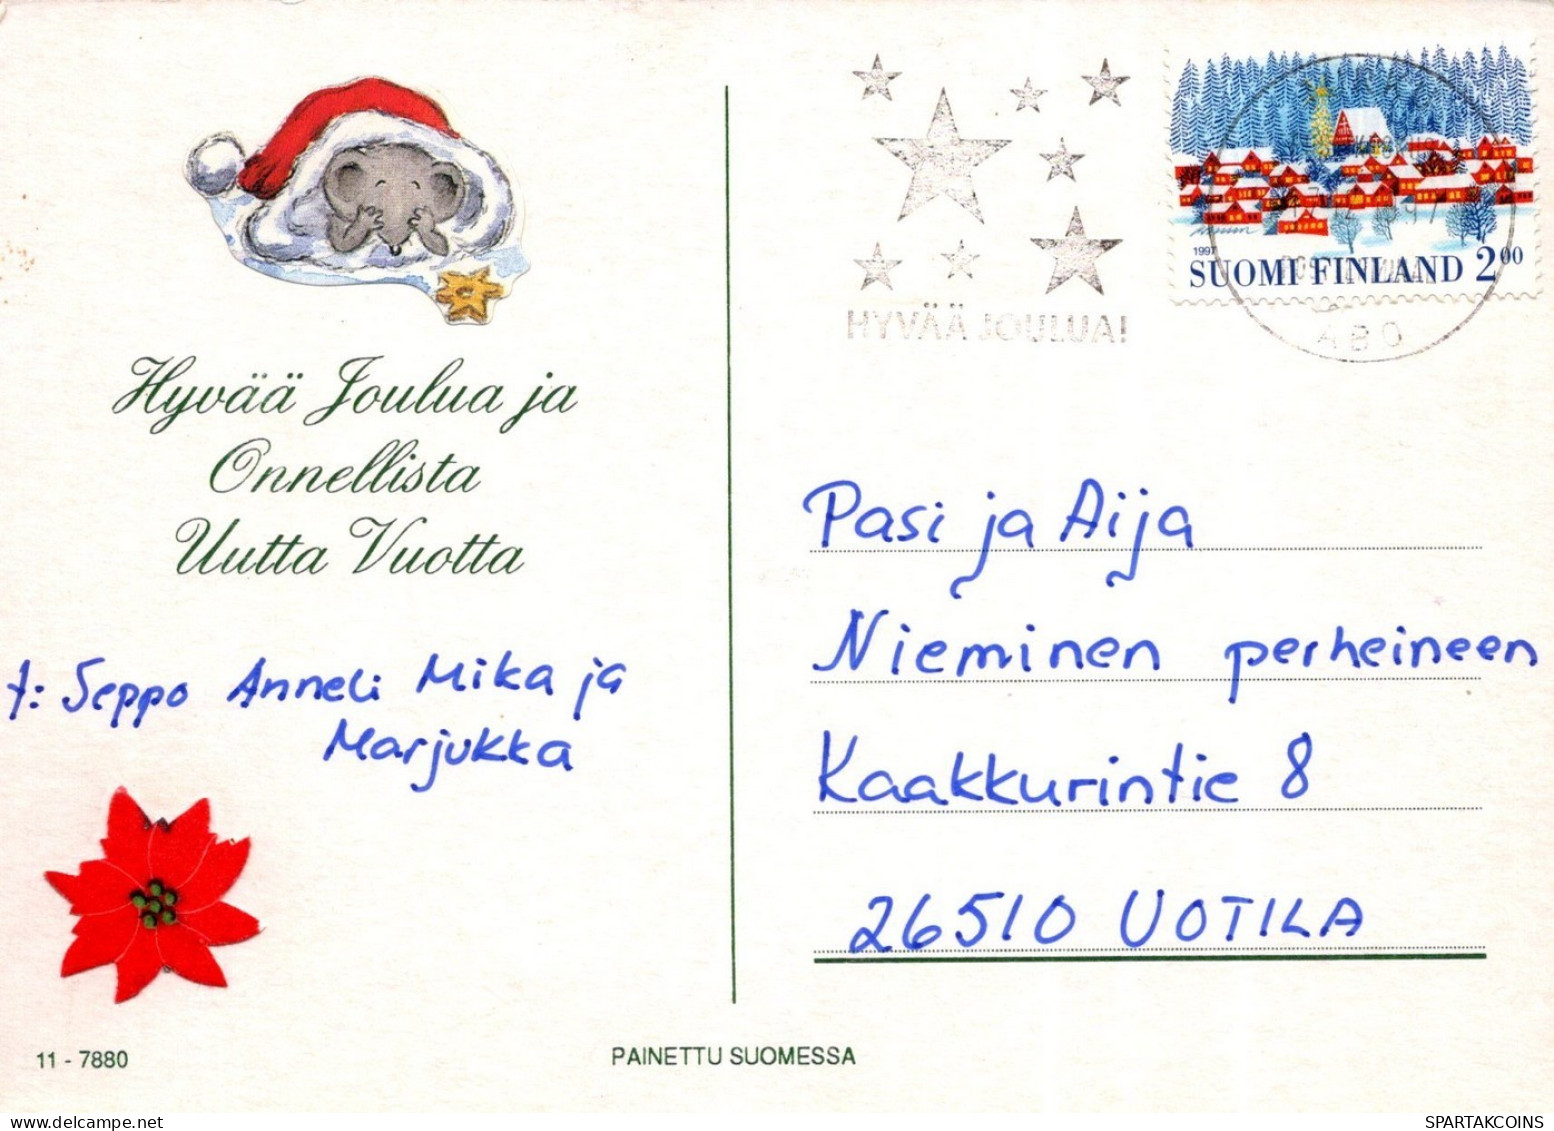 HYVÄÄ JOULUA!
1997
SUOMI FINLAND 2 00
ABO
Hyvää Joulua ja
Onnellista
Uutta Vuotta
t: Seppo Anneli Mika ja
Marjukka
Pasi ja Aija
Nieminen perheineen
Kaakkurintie 8
26510 UOTILA
11 - 7880
PAINETTU SUOMESSA
SPARTAKCOINS